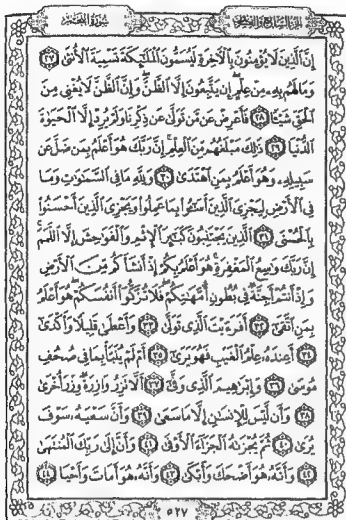 الجزء السابع والعشرون سورة النجم
إِنَّ ٱلَّذِينَ لَا يُؤْمِنُونَ بِٱلْأَخِرَةِ لَيُسَمُّونَ ٱلْمَلَٰٓئِكَةَ تَسْمِيَةَ ٱلْأُنثَىٰ ٢٧
وَمَا لَهُم بِهِۦ مِنْ عِلْمٍ إِن يَتَّبِعُونَ إِلَّا ٱلظَّنَّ وَإِنَّ ٱلظَّنَّ لَا يُغْنِى مِنَ
ٱلْحَقِّ شَيْـًٔا ٢٨ فَأَعْرِضْ عَن مَّن تَوَلَّىٰ عَن ذِكْرِنَا وَلَمْ يُرِدْ إِلَّا ٱلْحَيَوٰةَ
ٱلدُّنْيَا ٢٩ ذَٰلِكَ مَبْلَغُهُم مِّنَ ٱلْعِلْمِ إِنَّ رَبَّكَ هُوَ أَعْلَمُ بِمَن ضَلَّ عَن
سَبِيلِهِۦ وَهُوَ أَعْلَمُ بِمَنِ ٱهْتَدَىٰ ٣٠ وَلِلَّهِ مَا فِى ٱلسَّمَٰوَٰتِ وَمَا
فِى ٱلْأَرْضِ لِيَجْزِىَ ٱلَّذِينَ أَسَٰٓـُٔوا۟ بِمَا عَمِلُوا۟ وَيَجْزِىَ ٱلَّذِينَ أَحْسَنُوا۟
بِٱلْحُسْنَى ٣١ ٱلَّذِينَ يَجْتَنِبُونَ كَبَٰٓئِرَ ٱلْإِثْمِ وَٱلْفَوَٰحِشَ إِلَّا ٱللَّمَمَ
إِنَّ رَبَّكَ وَٰسِعُ ٱلْمَغْفِرَةِ هُوَ أَعْلَمُ بِكُمْ إِذْ أَنشَأَكُم مِّنَ ٱلْأَرْضِ
وَإِذْ أَنتُمْ أَجِنَّةٌ فِى بُطُونِ أُمَّهَٰتِكُمْ فَلَا تُزَكُّوٓا۟ أَنفُسَكُمْ هُوَ أَعْلَمُ
بِمَنِ ٱتَّقَىٰٓ ٣٢ أَفَرَءَيْتَ ٱلَّذِى تَوَلَّىٰ ٣٣ وَأَعْطَىٰ قَلِيلًا وَأَكْدَىٰٓ
٣٤ أَعِندَهُۥ عِلْمُ ٱلْغَيْبِ فَهُوَ يَرَىٰٓ ٣٥ أَمْ لَمْ يُنَبَّأْ بِمَا فِى صُحُفِ
مُوسَىٰ ٣٦ وَإِبْرَٰهِيمَ ٱلَّذِى وَفَّىٰٓ ٣٧ أَلَّا تَزِرُ وَازِرَةٌ وِزْرَ أُخْرَىٰ
٣٨ وَأَن لَّيْسَ لِلْإِنسَٰنِ إِلَّا مَا سَعَىٰ ٣٩ وَأَنَّ سَعْيَهُۥ سَوْفَ
يُرَىٰ ٤٠ ثُمَّ يُجْزَىٰهُ ٱلْجَزَآءَ ٱلْأَوْفَىٰ ٤١ وَأَنَّ إِلَىٰ رَبِّكَ ٱلْمُنتَهَىٰ
٤٢ وَأَنَّهُۥ هُوَ أَضْحَكَ وَأَبْكَىٰ ٤٣ وَأَنَّهُۥ هُوَ أَمَاتَ وَأَحْيَا ٤٤
٥٢٧